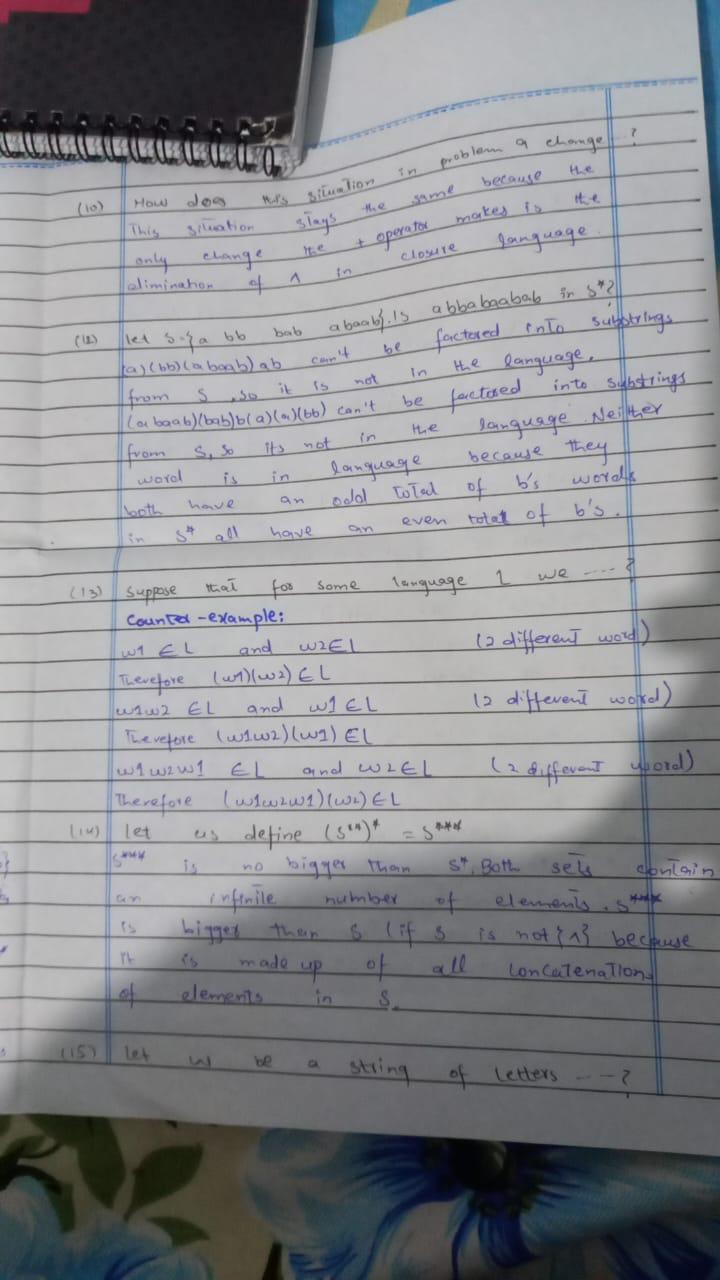 (10) How does this situation in problem 9 change ---?
This situation stays the same because the
only change the + operator makes is the
elimination of ^ in closure language.
(12) let S={a bb bab abaab}. Is abbabaabab in S*?
(a)(bb)(abaab)ab can't be factored into substrings
from S, so it is not in the language.
(abaab)(bab)b(a)(a)(bb) can't be factored into substrings
from S, so its not in the language. Neither
word is in language because they
both have an odd total of b's words
in S* all have an even total of b's.
(13) Suppose that for some language L we ----?
Counter-example:
w1 ∈ L and w2 ∈ L (2 different word)
Therefore (w1)(w2) ∈ L
w1w2 ∈ L and w1 ∈ L (2 different word)
Therefore (w1w2)(w1) ∈ L
w1w2w1 ∈ L and w2 ∈ L (2 different word)
Therefore (w1w2w1)(w2) ∈ L
(14) let us define (S**)* = S***
S*** is no bigger than S*. Both sets contain
an infinite number of elements. S***
is bigger then S (if S is not {^} because
it is made up of all concatenation
of elements in S.
(15) let w be a string of letters ---?